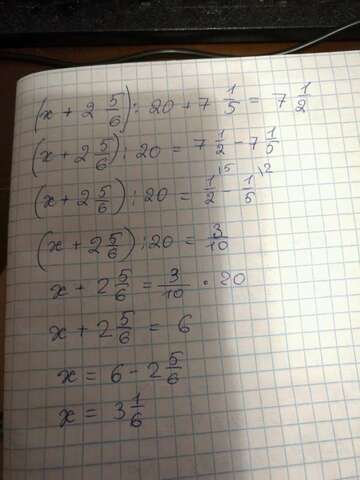 (x + 2 5/6) : 20 + 7 1/5 = 7 1/2
(x + 2 5/6) : 20 = 7 1/2 - 7 1/5
(x + 2 5/6) : 20 = 1/2 \5 - 1/5 \2
(x + 2 5/6) : 20 = 3/10
x + 2 5/6 = 3/10 · 20
x + 2 5/6 = 6
x = 6 - 2 5/6
x = 3 1/6